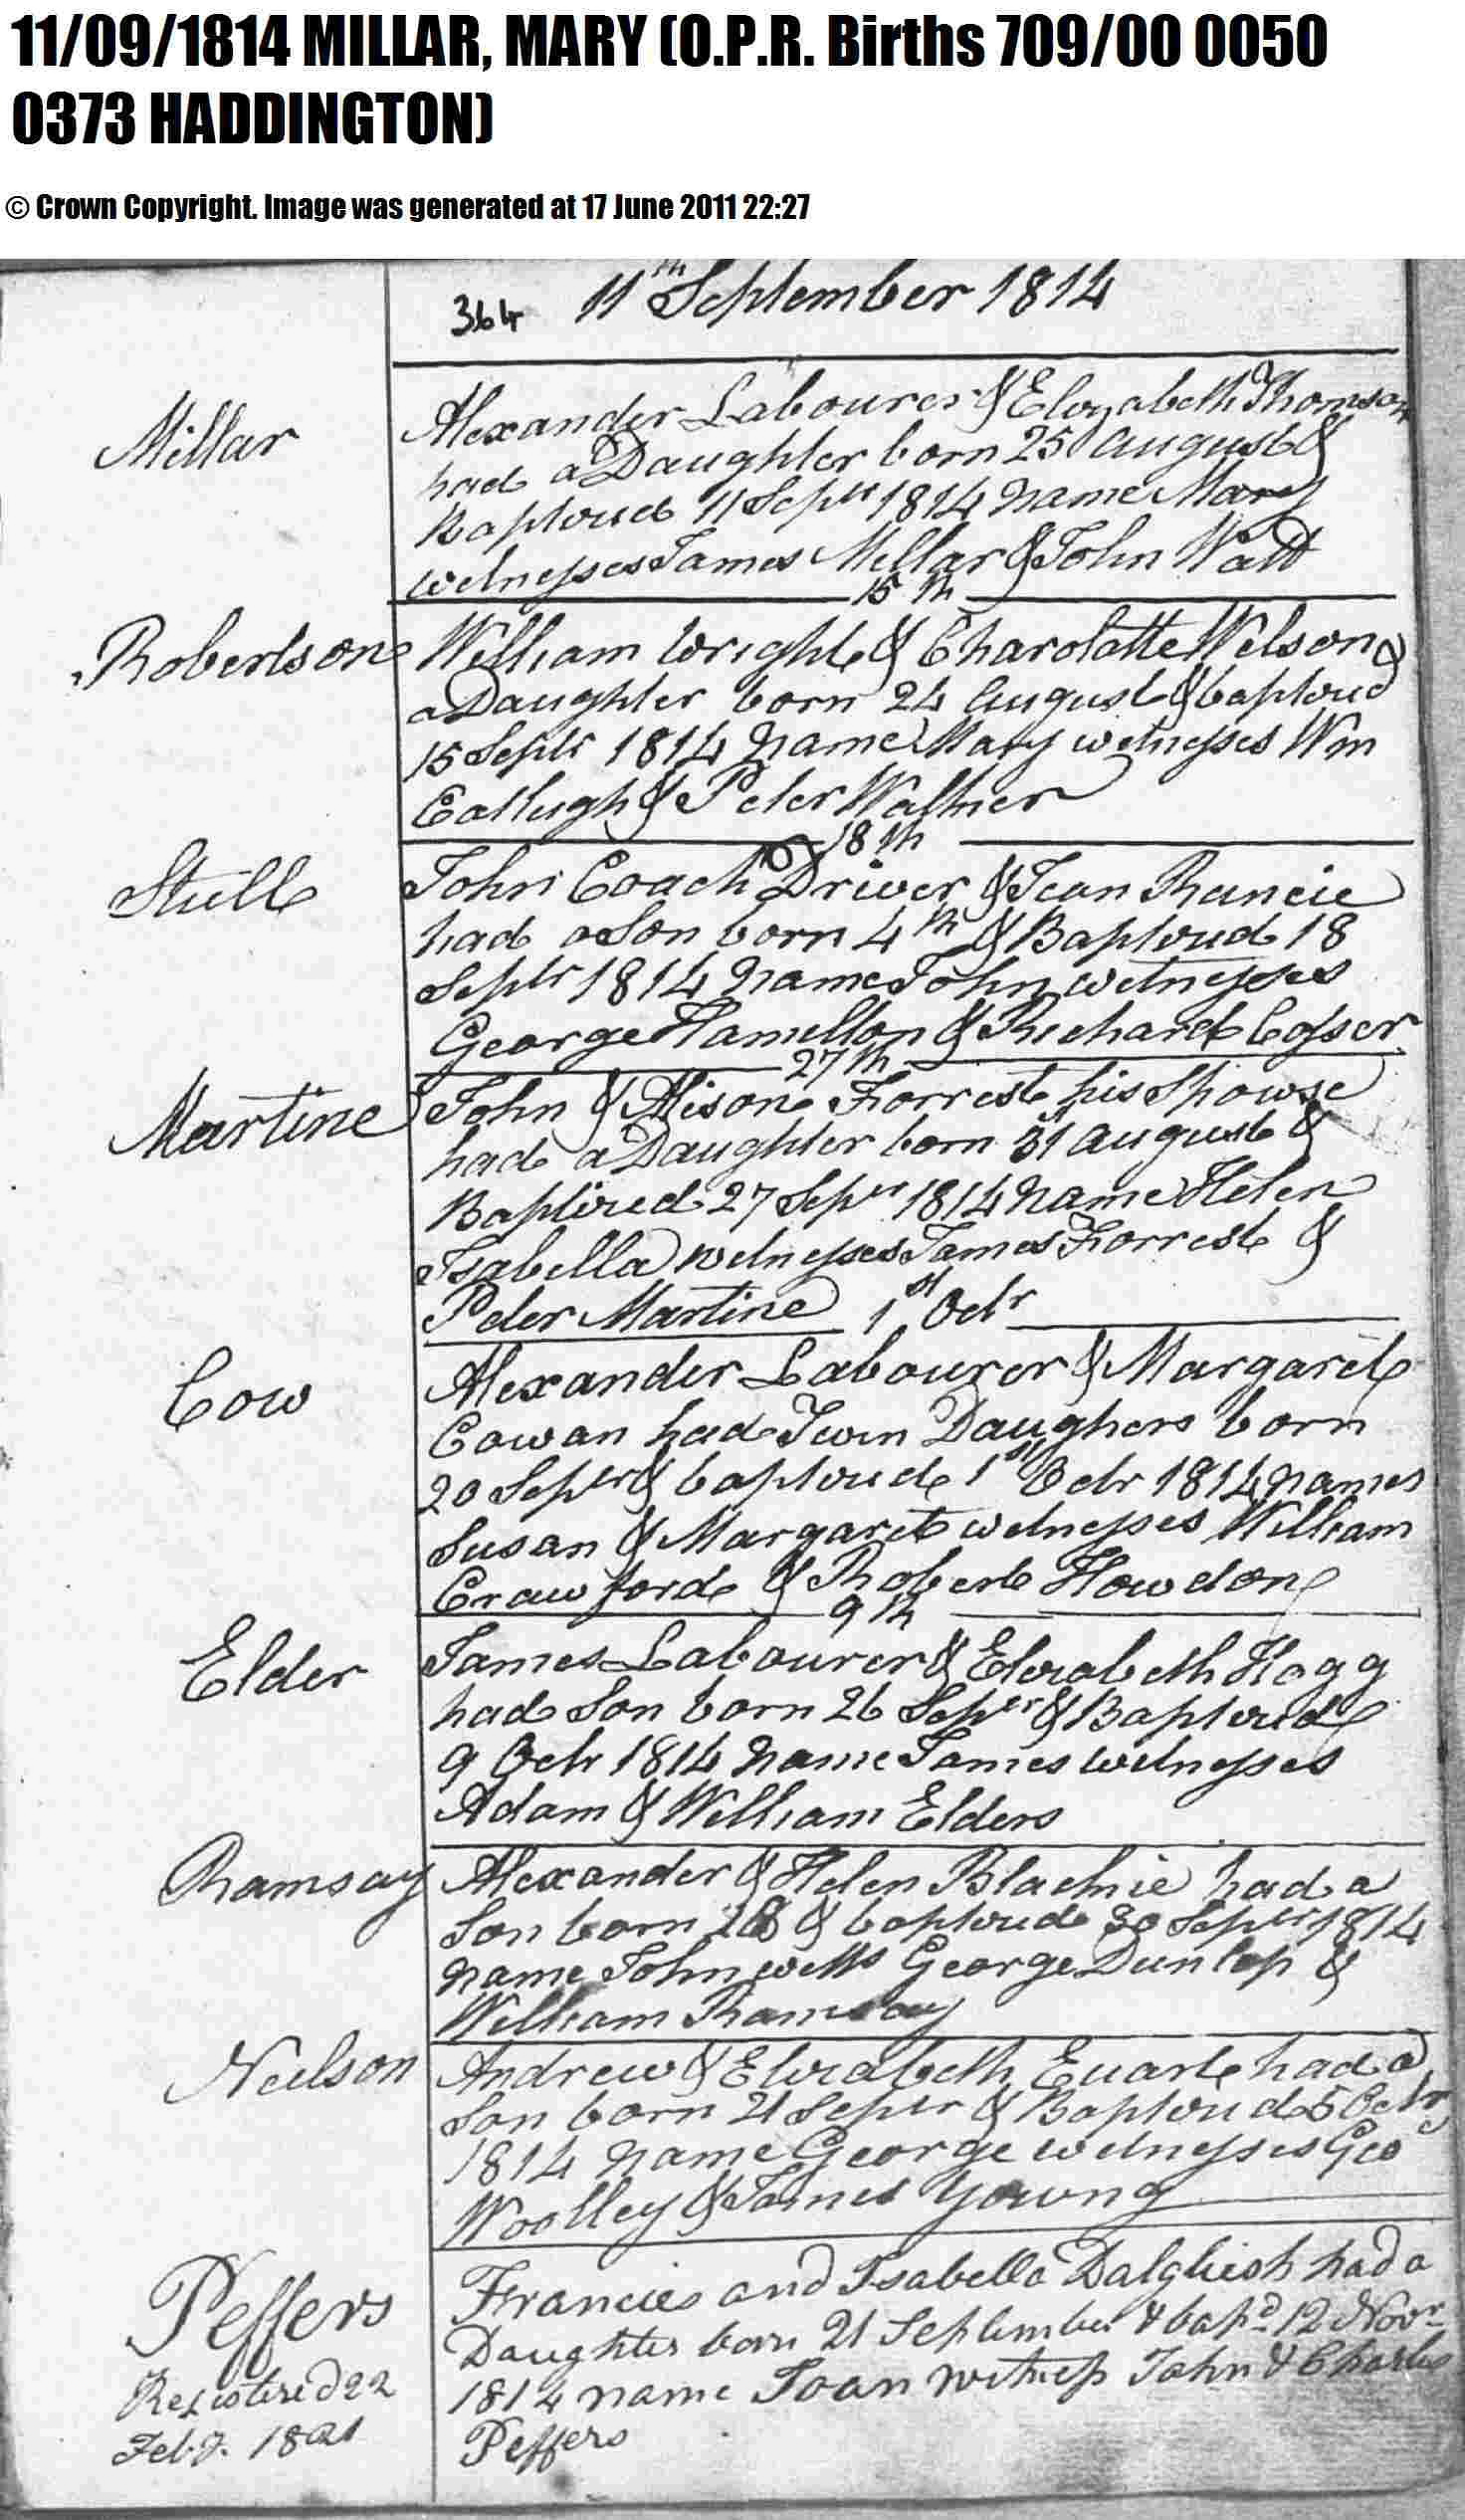 11/09/1814 MILLAR, MARY (O.P.R. Births 709/00 0050
0373 HADDINGTON)
© Crown Copyright. Image was generated at 17 June 2011 22:27
364 11th September 1814
Millar
Alexander Labourer & Elizabeth Thomson
had a Daughter born 25 August &
Baptized 11 Septr 1814 Name Mary
witnesses James Millar & John Watt
15th
Robertson
William Wright & Charolatte Wilson
a Daughter born 24 August & baptized
15 Septr 1814 Name Mary witnesses Wm
& Peter Walker
18th
Stull
John Coach Driver & Jean Rancie
had a Son born 4th & Baptized 18
Septr 1814 Name John witnesses
George Hamilton & Richard Cosser
27th
Martine
John & Alison Forrest his Spowse
had a Daughter born 31 August &
Baptized 27 Sepr 1814 Name Helen
Isabella witnesses James Forrest &
Peter Martine 1st Octr
Cow
Alexander Labourer & Margaret
Cowan had Twin Daughers born
20 Sepr & baptized 1st Octr 1814 names
Susan & Margaret witnesses William
Crawford & Robert Howdon
9th
Elder
James Labourer & Elizabeth Hogg
had Son born 26 Sepr & Baptized
9 Octr 1814 Name James witnesses
Adam & William Elders
Ramsay
Alexander & Helen Blackie had a
Son born 28 & baptized 30 Septr 1814
Name John witts George Dunlop &
William Ramsay
Neilson
Andrew & Elizabeth Euart had a
Son born 21 Septr & Baptized 5 Octr
1814 Name George witnesses Geo
Woolley & James Young
Peffers
Registered 22
Feby. 1821
Francies and Isabella Dalgliesh had a
Daughter born 21 September & bapd 12 Novr
1814 name Joan witness John & Charles
Peffers